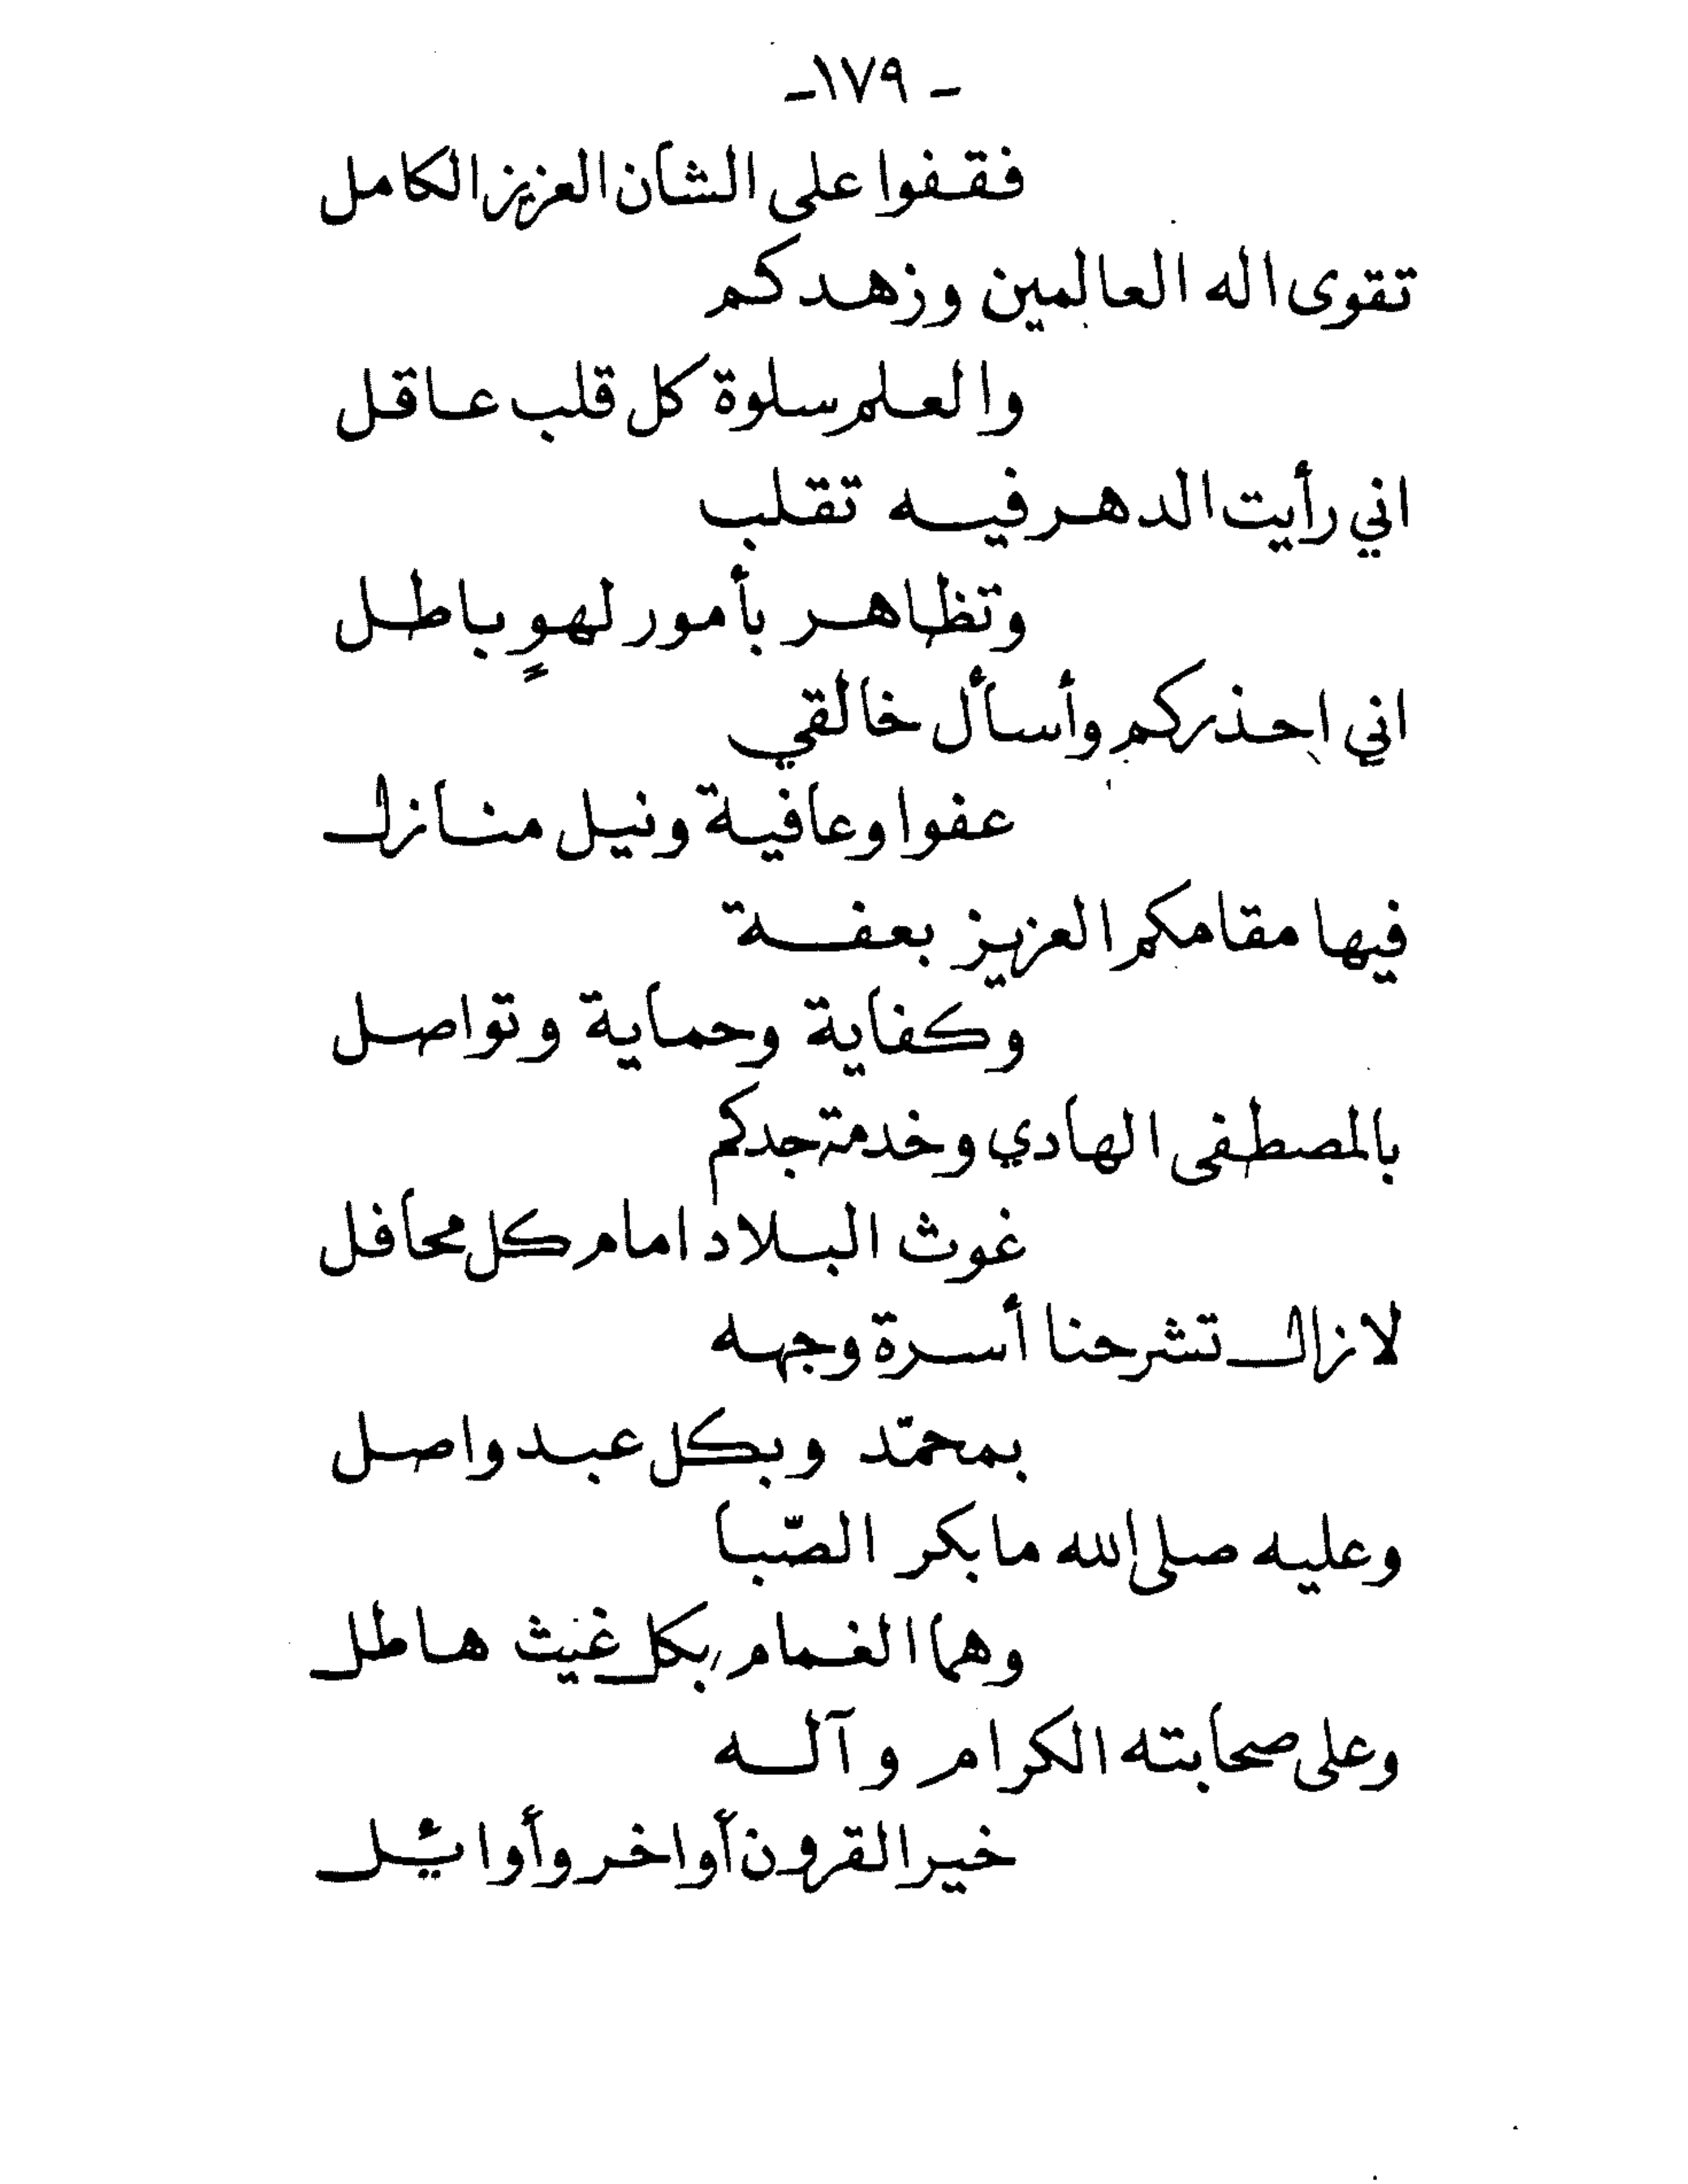 - ١٧٩ -
فقفوا على الشأن العزيز الكامل
تقوى اله العالمين وزهدكم
والعلم سلوة كل قلب عاقل
اني رأيت الدهر فيه تقلب
وتظاهر بأمور لهوٍ باطل
اني احذركم وأسأل خالقي
عفوا وعافية ونيل منازل
فيها مقامكم العزيز بعفة
وكفاية وحماية وتواصل
بالمصطفى الهادي وخدمة جدكم
غوث البلاد امام كل محافل
لازال تشرحنا أسرة وجهه
بمحمّد وبكل عبد واصل
وعليه صلى الله ما بكر الصّبا
وهما الغمام بكل غيث هاطل
وعلى صحابته الكرام وآله
خير القرون أواخر وأوائل